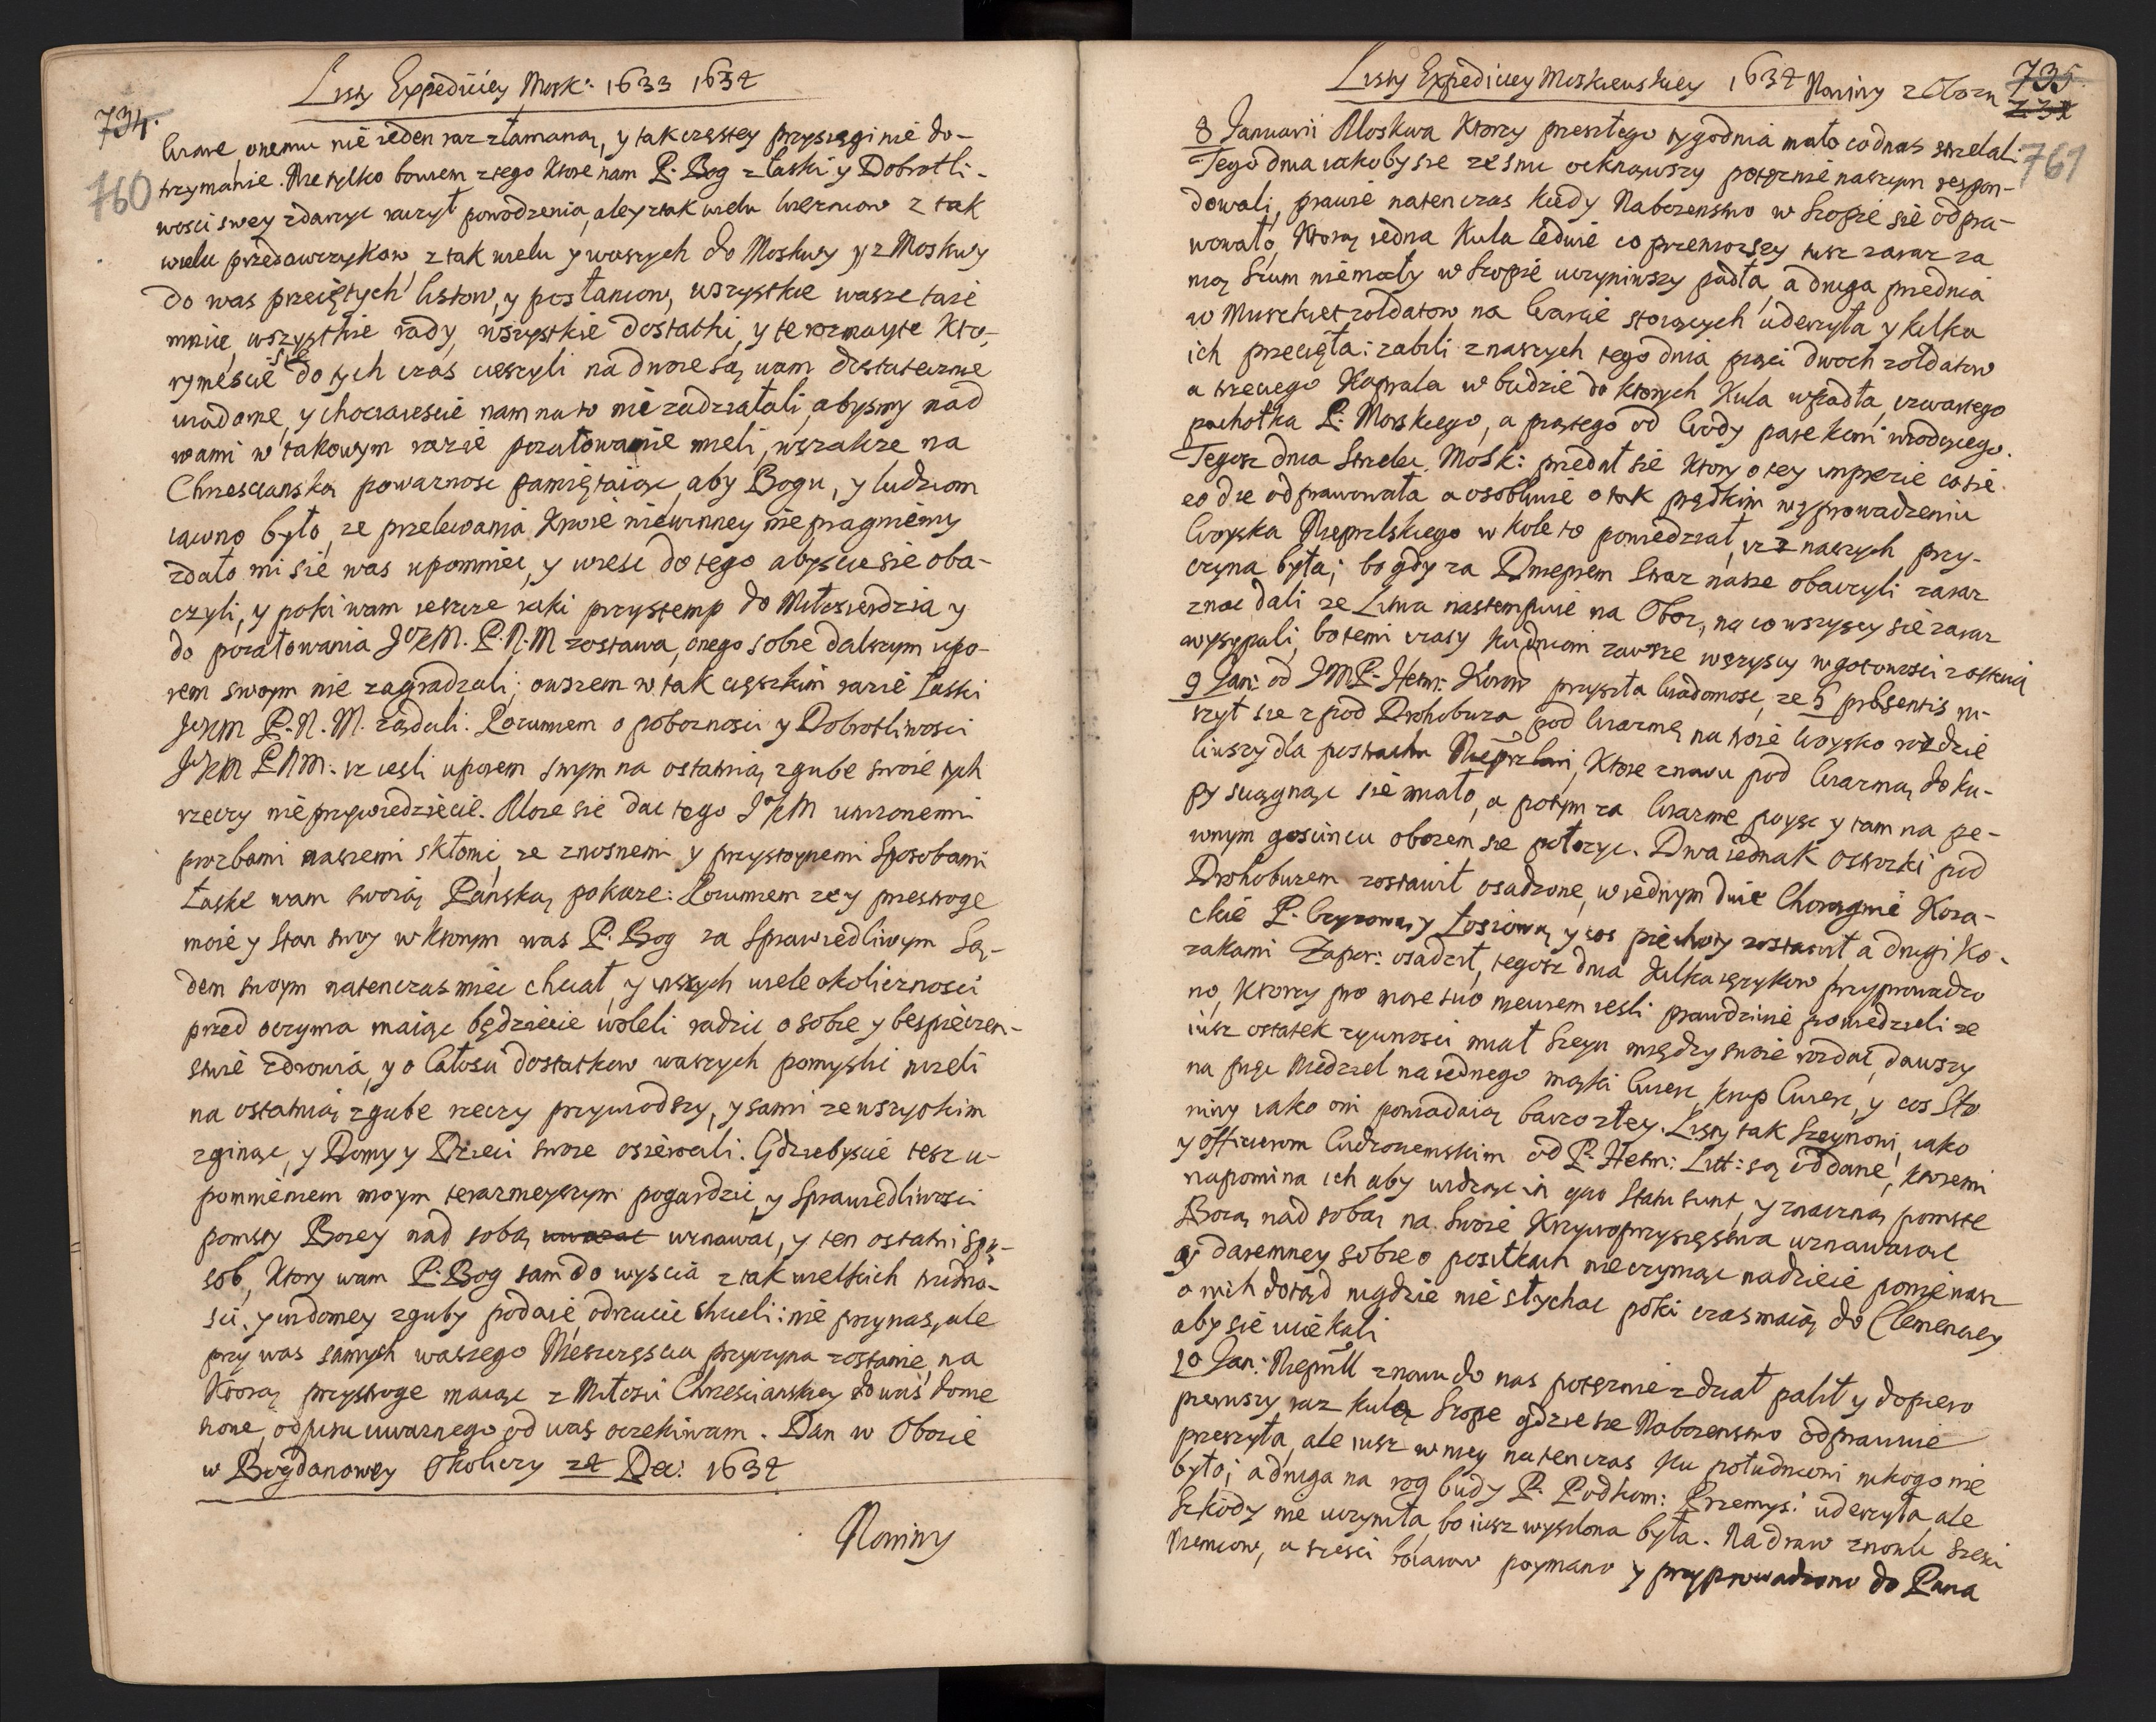 Listy Expediciey Mosk: 1633 1634
734.
760
wiare, onemu nie ieden raz złamaną, y tak częstey przysięgi nie do-
trzymanie. Nie tylko bowiem z tego ktore nam P. Bog z łaski y Dobrotli-
wosci swey zdarzyc raczył powodzenia, ale y z tak wielu wiezniow z tak
wielu przedawczykow z tak wielu y waszych do Moskwy y z Moskwy
do was przeiętych listow, y posłancow, wszystkie wasze taie
mnice, wszystkie rady, wszystkie dostatki, y te rozmayte kto-
rymescie się do tych czas cieszyli nadzieie są nam dostatecznie
wiadome, y chociaiescie nam na to nie zadziałali, abysmy nad
wami w takowym razie pozałowanie mieli, wszakze na
Chrescianska powaznosc pamiętaiąc, aby Bogu, y ludziom
iawno było, ze przelewania krwie niewinney nie pragniemy
zdało mi sie was upomniec, y wiesc do tego abyscie sie oba-
czyli, y poki wam ieszcze iaki przystemp do Miłosierdzia y
do pozałowania JoKM. P.N.M zostawa, onego sobie dalszym upo-
rem swoym nie zagradzali; owszem w tak cięszkim razie łaski
JeKM P.N.M. ządali. Rozumiem o poboznosci y Dobrotliwosci
JoKM PNM: iz iesli uporem swym na ostatnią zgube swoie tych
rzeczy nieprzywiedziecie. Moze sie dac tego JoKM unizonemi
prozbami naszemi skłonic, ze znosnemi y przystoynemi sposobami
Łaske wam swoią Panską pokaze: Rozumiem ze y przestroge
moie y stan swoy w ktorym was P. Bog za sprawiedliwym Są-
dem swoym natenczas miec chciał, y inszych wiele okolicznosci
przed oczyma maiąc będziecie woleli radzic o sobie y bespieczen-
stwie zdrowia, y o całosci dostatkow waszych pomyslic nizeli
na ostatnią zgube rzeczy przywodszy, y sami ze wszystkim
zginąc, y Domy y Dzieci swoie osierocali. Gdziebyscie tesz u-
pomnieniem moym teraznieyszym pogardzic, y Sprawiedliwosci
pomsty Bozey nad sobą uznawac, y ten ostatni Spo-
sob, ktory wam P. Bog sam do wyscia z tak wielkich trudno-
sci, y widomey zguby podaie odrzucic chcieli: nie przy nas, ale
przy was samych waszego Nieszczęscia przyczyna zostanie, na
Ktorą przystroge maiąc z Miłosci Chrzescianskiey do was donie
sione, odpisu uwaznego od was oczekiwam. Dan w Obozie
w Bogdanowey Okolicy 24 Dec: 1634
Nowiny
Listy Expediciey Moskiewskiey 1634 Nowiny z Obozu
735
761
8 Januarii Moskwa ktorzy przeszłego tygodnia mało co do nas strzelali
Tego dnia iakoby sie ze snu ocknąwszy potęznie naszym respon-
dowali, prawie natenczas kiedy Nabozenstwo w szopie sie odpra-
wowało, ktorą iedna Kula ledwie co przeniozszy tusz zaraz za
nią szum niemały w szopie uczyniwszy padła, a druga przednia
w Muszkiet zołdatow na warcie stoiących uderzyła y kilka
ich przecięła: zabili z naszych tego dnia pięci dwoch zołdatow
a trzeciego Kaprala w budzie do ktorych Kula wpadła, czwartego
pachołka P. Morskiego, a piątego od wody pasekoni wiodącego.
Tegosz dnia Strelec Mosk: przedał sie ktory o tey imprezie co sie
eo die odprawowała a osobliwie o tak prędkim wyprowadzeniu
woyska Nieprlskiego w kole to powiedział, iz z naszych przy-
czyna była; bo gdy za Dnieprem straz nasze obaczyli zaraz
znac dali ze Litwa nastempuie na Oboz, na co wszyscy sie zaraz
wysypali, bo temi czasy ku dniowi zawsze wszyscy w gotowosci zostaią
9 Jan: od JMP. Hetm: Koron przyszła wiadomosc, ze 5 praesentis ru-
szył sie z pod Drohobuza pod Wiazmę na swoie woysko rozdzie
liwszy dla postrachu Nieprlowi, ktore znowu pod Wiazmą do ku-
py sciągnąc sie miało, a potym za Wiazme poysc y tam na pe-
wnym goscincu obozem sie połozyc. Dwa iednak ostrozki pod
Drohobuzem zostawił osadzone, w iednym dwie Choragwie Koza-
ckie P. Czyzową y Łosiową y 100 piechoty zostawił a drugi Ko-
zakami Zapor: osadził, tegosz dnia Kilka ięzykow przyprowadzo
no, ktorzy pro more suo niewiem iesli prawdziwie powiedzieli ze
iusz ostatek zywnosci miał Szeyn między swoie rozdac, dawszy
na pięc Niedziel na iednego mąki cwierc, krup cwierc, y cos Sło
niny iako oni powiadaią barzo złey. Listy tak Szeynowi, iako
y Officierom Cudzoziemskim od P. Hetm: Litt: są oddane, ktoremi
napomina ich aby widząc in quo statu sunt, y znaczną pomste
Bozą nad sobą na swoie Krzywoprzysięstwa uznawaiąc
daremney sobie o posiłkach nie czyniąc nadzieie poniewasz
o nich dotąd nigdzie nie słychac poki czas maią do Clemenciey
aby sie uciekali
10 Jan: Nieprlll znowu do nas potęznie z dział palił y dopiero
pierwszy raz kulą szope gdzie sie Nabozenstwo odprawuie
przeszyła, ale iusz w niey natenczas ku południowi nikogo nie
było; a druga na rog budy P. Podkom: Przemys: uderzyła ale
szkody nie uczyniła, bo iusz wysilona była. Nadraw znowu szesc
Niemcow, a szesci boiarow poymano y przyprowadzono do Pana